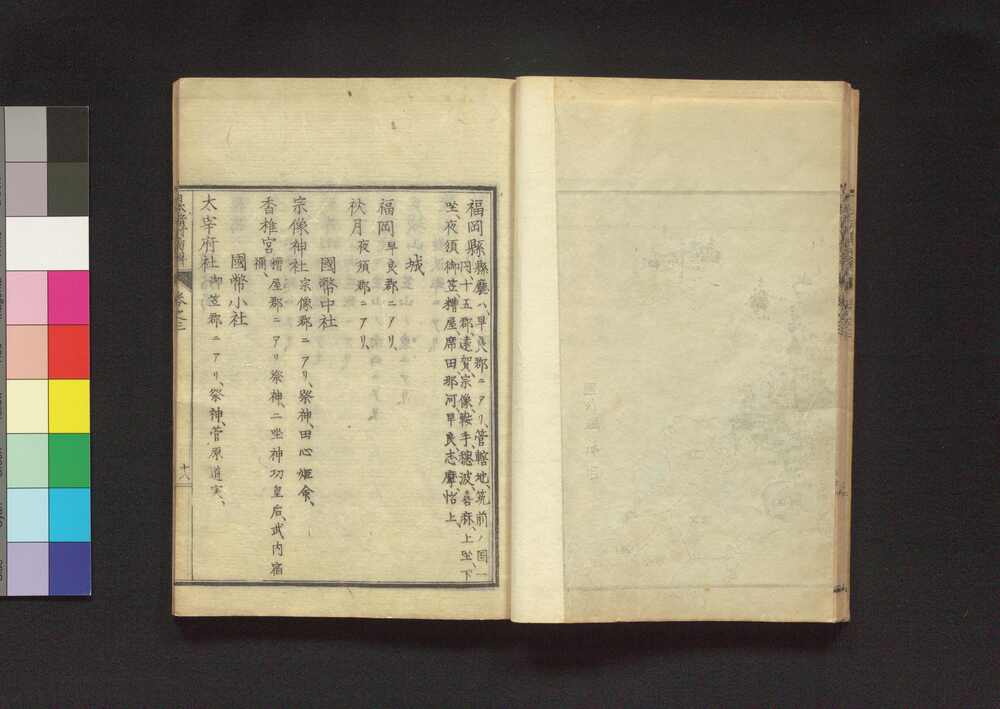 福岡縣縣廳ハ、早良郡ニアリ、管轄地、筑前ノ国一
円、十五郡、遠賀、宗像、鞍手、穂波、嘉麻、上坐、下
坐、夜須、御笠、糟屋、席田、那河、早良、志摩、怡土、
城
福岡早良郡ニアリ、
秋月夜須郡ニアリ、
國幣中社
宗像神社宗像郡ニアリ、祭神、田心姫命、
香椎宮糟屋郡ニアリ祭神、二坐神功皇后、武内宿
禰、
國幣小社
太宰府社御笠郡ニアリ、祭神、菅原道実、
卷之三
十六